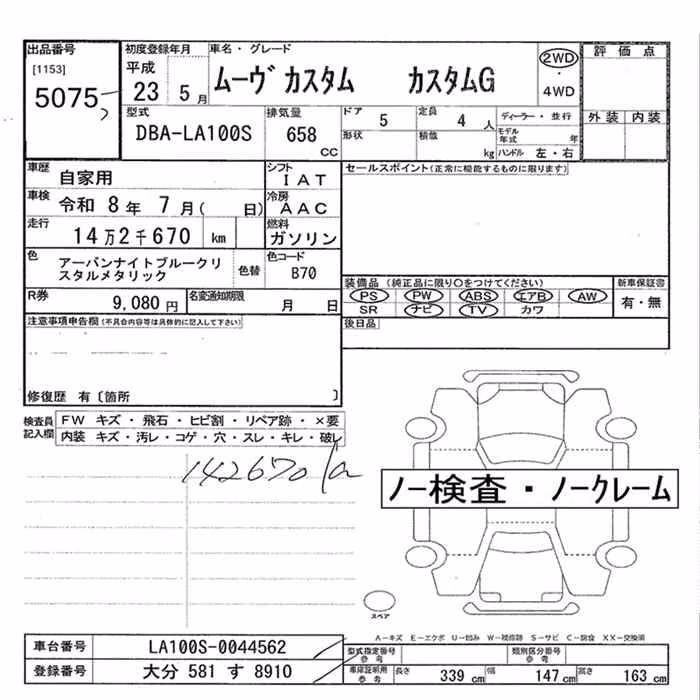 出品番号
[1153]
5075
初度登録年月
平成
23 5 月
車名・グレード
ムーヴ カスタム カスタムG
2WD
・
4WD
評価点
外装 内装
型式
DBA-LA100S
排気量
658
cc
ドア 5
定員 4 人
ディーラー・並行
形状
積載 kg
モデル年式 年
ハンドル 左・右
車歴
自家用
シフト
IAT
セールスポイント(正常に機能するものに限ります)
車検 令和 8 年 7 月( 日)
冷房
AAC
走行
14万2千670 km
燃料
ガソリン
色
アーバンナイトブルークリ
スタルメタリック
色替
色コード
B70
装備品 (純正品に限り〇をつけてください)
新車保証書
PS PW ABS エアB AW
SR ナビ TV カワ
有・無
R券
9,080 円
名変通知期限
月 日
後日品
注意事項申告欄(不具合内容等は具体的に記入して下さい)
修復歴 有〔箇所 〕
検査員
記入欄
FW キズ・飛石・ヒビ割・リペア跡・×要
内装 キズ・汚レ・コゲ・穴・スレ・キレ・破レ
142670
ノー検査・ノークレーム
スペア
A-キズ E-エクボ U-凹み W-補修跡 S-サビ C-腐食 XX-交換済
車台番号
LA100S-0044562
登録番号
大分 581 す 8910
型式指定番号
参考
類別区分番号
参考
車庫証明用
参考
長さ 339 cm 幅 147 cm 高さ 163 cm